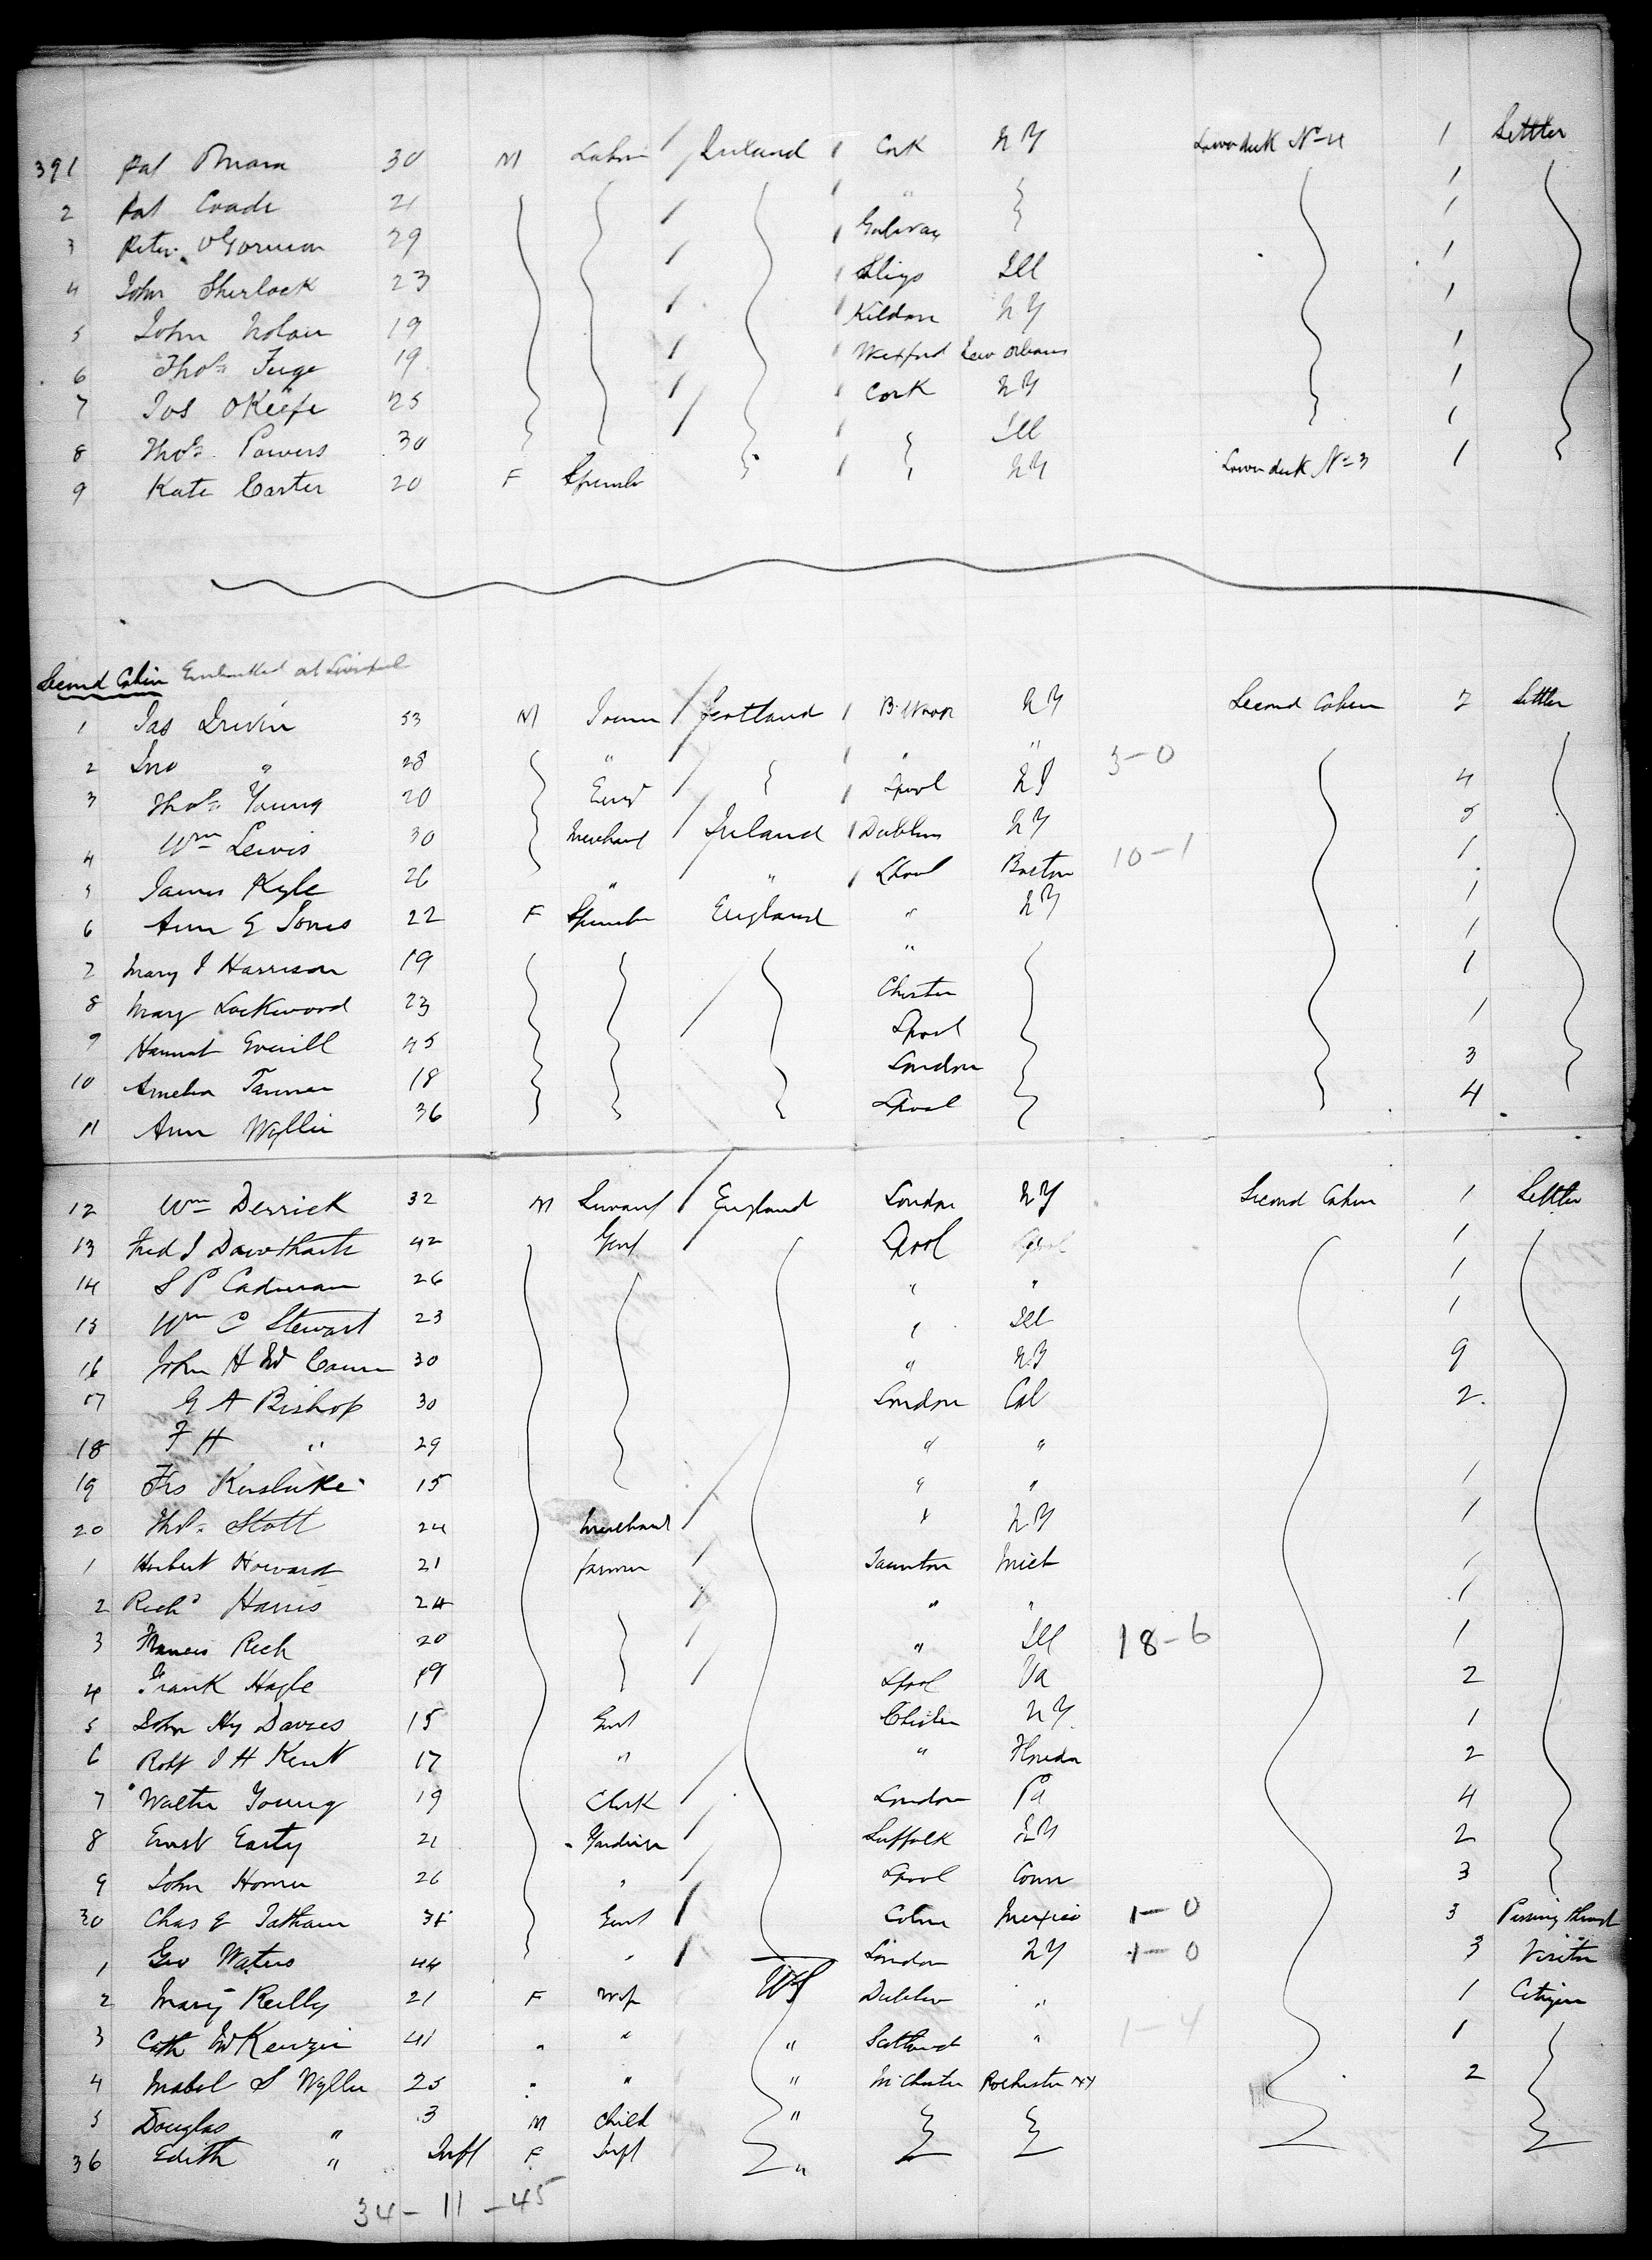 391 Pat Omara 30 M Labr Ireland Cork NY Lower deck No 4 1 Settler
2 Pat Coade 21 " 1
3 Peter OGorman 29 Galway 1
4 John Sherlock 23 Sligo Ill 1
5 John Nolan 19 Kildare NY 1
6 Thos Fuge 19 Wexford New Orleans 1
7 Jos OKeefe 25 Cork NY 1
8 Thos Powers 30 Ill 1
9 Kate Carter 20 F Spinster NY Lower deck No 3 1
Second Cabin Embarked at Liverpool
1 Jas Irwin 53 M Scotland NY Second Cabin 2 Settler
2 Jno " 28 " " " 3-0
3 Thos Young 20 Lpool NY 4
4 Wm Lewis 30 Merchant Ireland Dublin NY 5
5 James Kyle 26 " " Lpool Boston 10-1 1
6 Ann E Jones 22 F Spinster England " NY 1
7 Mary J Harrison 19 " 1
8 Mary Lockwood 23 Chester 1
9 Hannah Averill 45 Lpool 1
10 Amelia Tanner 18 London 3
11 Ann Wyllie 36 Lpool 4
12 Wm Derrick 32 M Servant England London NY Second Cabin 1 Settler
13 Fred J 42 Gent Lpool 1
14 S P Cadman 26 " " 1
15 Wm C Stewart 23 " Ill 1
16 John H 30 " NY 9
17 G A Bishop 30 London Cal 2
18 F H " 29 " "
19 Frs Kerslake 15 " " 1
20 Thos Stott 24 Merchant " NY 1
1 Herbert Howard 21 farmer Taunton Mich 1
2 Richd Harris 24 " " 1
3 Francis Rich 20 " Ill 18-6 1
4 Frank Hayle 19 Lpool Va 2
5 John Hy Davies 15 Gent Chester NY 1
6 Robt J H Kent 17 " " Florida 2
7 Walter Young 19 Clerk London Pa 4
8 Ernest Easty 21 Gardiner Suffolk NY 2
9 John Horner 26 " Lpool Conn 3
30 Chas E Tatham 31 Gent Mexico 1-0 3 Passing through
1 Geo Waters 44 " London NY 1-0 3 Visitor
2 Mary Reilly 21 F Wife US Dublin " 1 Citizen
3 Cath McKenzie 41 " " " Scotland " 1-4 1
4 Mabel S Wyllie 25 " " " MChester Rochester NY 2
5 Douglas " 3 M Child "
36 Edith " Inft F Inft "
34-11-45